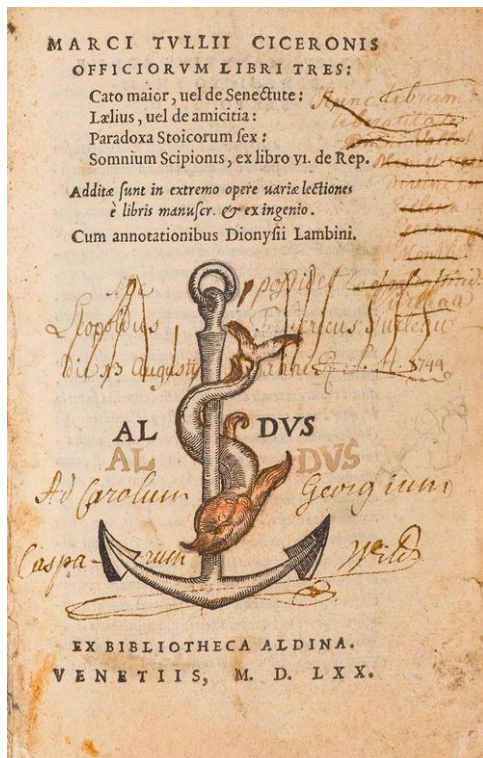 MARCI TVLLII CICERONIS
OFFICIORVM LIBRI TRES:
Cato maior, uel de Senectute:
Lælius, uel de amicitia:
Paradoxa Stoicorum ſex:
Somnium Scipionis, ex libro yi. de Rep.
Additæ ſunt in extremo opere uariæ lectiones
è libris manuſcr. & ex ingenio.
Cum annotationibus Dionyſii Lambini.
possidet
Leopoldus
Die 13 Augusti 1749
AL DVS
AL DVS
Ad Carolum Georgium
Caspa-rum Wild
EX BIBLIOTHECA ALDINA.
VENETIIS, M. D. LXX.